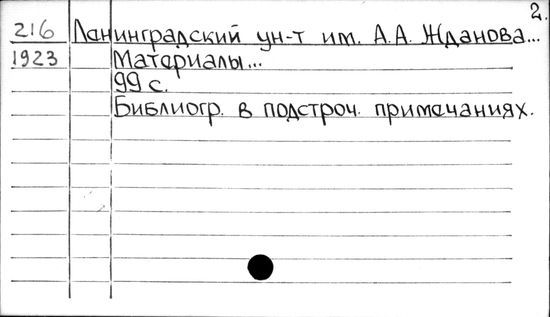 2.
216 Ленинградский ун-т им. А.А. Жданова...
1923 Материалы...
99 с.
Библиогр. в подстроч. примечаниях.